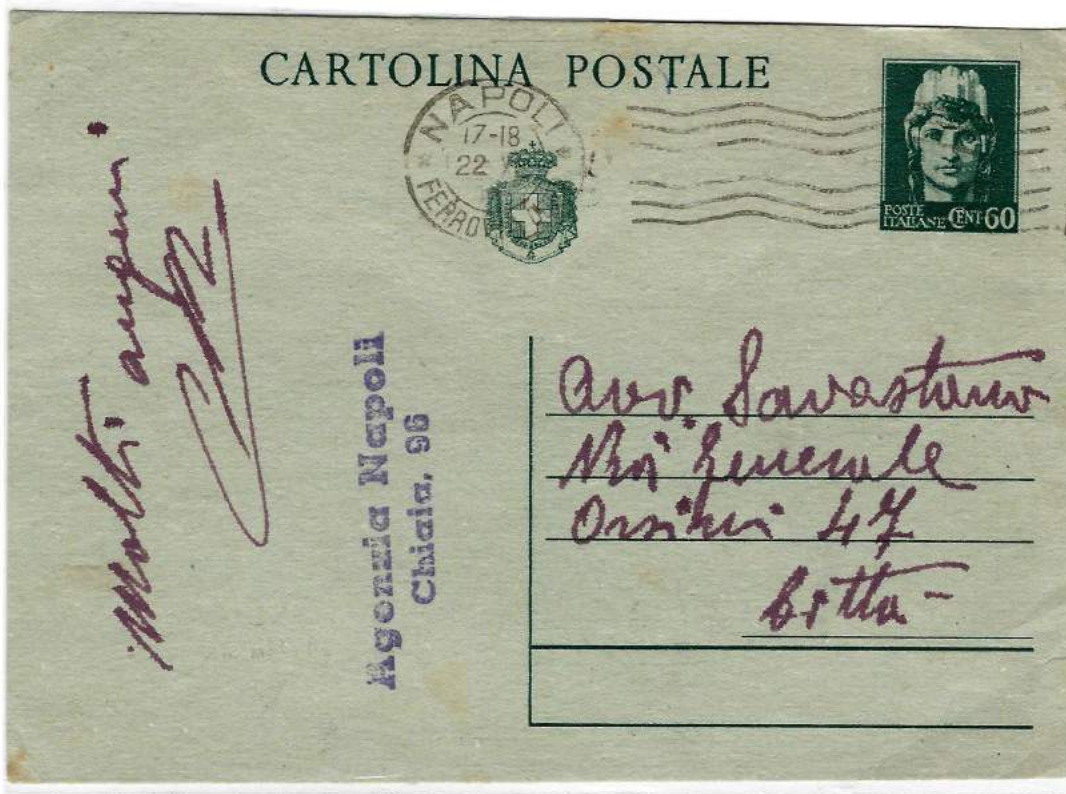 CARTOLINA POSTALE
NAPOLI
17-18
22
FERROV
POSTE
ITALIANE CENT 60
Molti auguri
Agenzia Napoli
Chiaia, 96
Avv. Savastano
Via Generale
Orsini 47
Città -